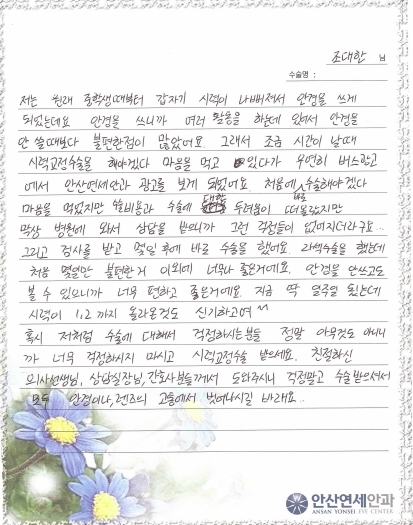 조대한 님
수술명 :
저는 원래 중학생때부터 갑자기 시력이 나빠져서 안경을 쓰게
되었는데요 안경을 쓰니까 여러 활동을 하는데 있어서 안경을
안 쓸때보다 불편한점이 많았어요. 그래서 조금 시간이 날때
시력교정수술을 해야겠다 마음을 먹고 있다가 우연히 버스광고
에서 안산연세안과 광고를 보게 되었어요 처음에 수술해야겠다
마음을 먹었지만 쓸비용과 수술에 대한 두려움이 바로 떠올랐지만
막상 병원에 와서 상담을 받으니까 그런 걱정들이 없어지더라구요...
그리고 검사를 받고 몇일 후에 바로 수술을 했어요 라섹수술을 했는데
처음 몇일만 불편한거 이외에 너무나 좋은거에요. 안경을 안쓰고도
볼 수 있으니까 너무 편하고 좋은거에요. 지금 딱 열흘쯤 됐는데
시력이 1.2 까지 올라온것도 신기하고여 ^^
혹시 저처럼 수술에 대해서 걱정하시는분들 정말 아무것도 아니니
까 너무 걱정하시지 마시고 시력교정수술 받으세요. 친절하신
의사선생님, 상담실장님, 간호사분들께서 도와주시니 걱정말고 수술받으셔서
모두 안경이나, 렌즈의 고통에서 벗어나시길 바래요...
안산연세안과
ANSAN YONSEI EYE CENTER